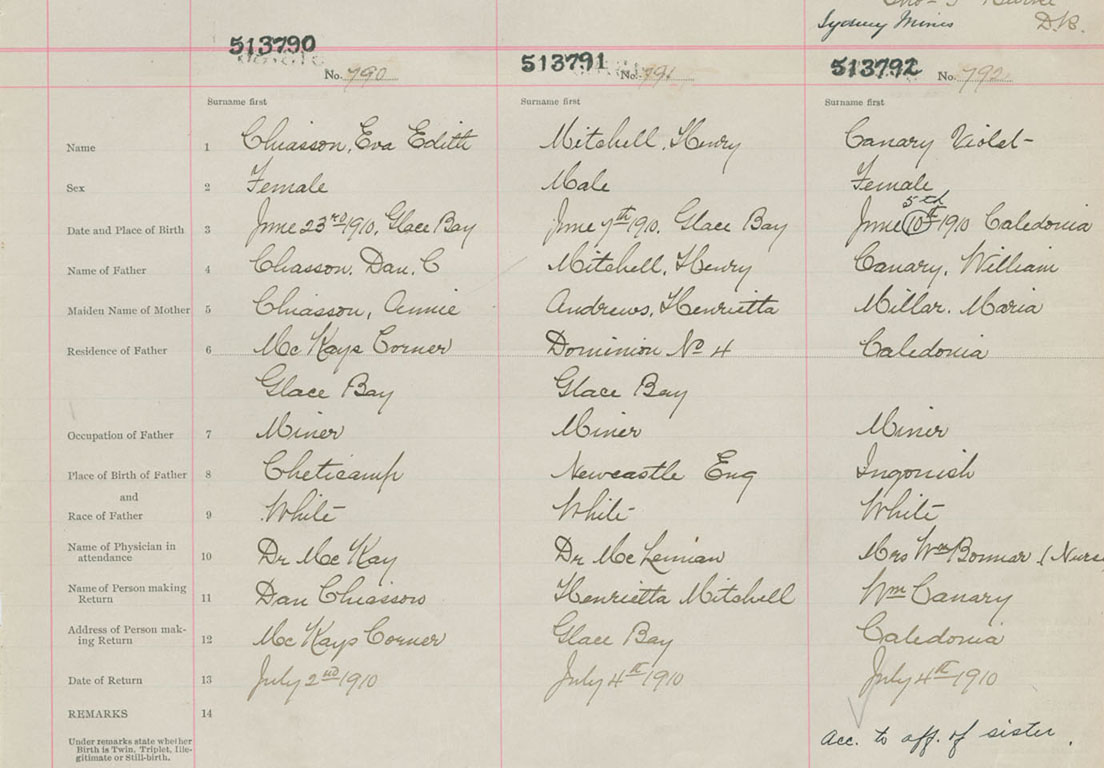 Sydney Mines D.B.
513790 513791 513792
No. 790 No. 791 No. 792
Surname first Surname first Surname first
Name 1 Chiasson, Eva Edith Mitchell, Henry Canary Violet
Sex 2 Female Male Female
5th
Date and Place of Birth 3 June 23rd 1910, Glace Bay June 7th 1910, Glace Bay June 10th 1910 Caledonia
Name of Father 4 Chasson, Dan. C Mitchell, Henry Canary, William
Maiden Name of Mother 5 Chiasson, Annie Andrews, Henrietta Millar. Maria
Residence of Father 6 McKays Corner Dominion No 4 Caledonia
Glace Bay Glace Bay
Occupation of Father 7 Miner Miner Miner
Place of Birth of Father 8 Cheticamp Newcastle Eng Ingonish
and
Race of Father 9 White White White
Name of Physician in
attendance 10 Dr McKay Dr McLennan Mrs Wm Bonnar (Nurse
Name of Person making
Return 11 Dan Chiasson Henrietta Mitchell Wm Canary
Address of Person mak-
ing Return 12 McKays Corner Glace Bay Caledonia
Date of Return 13 July 2nd 1910 July 4th 1910 July 4th 1910
REMARKS 14
acc. to aff. of sister.
Under remarks state whether
Birth is Twin, Triplet, Ille-
gitimate or Still-birth.